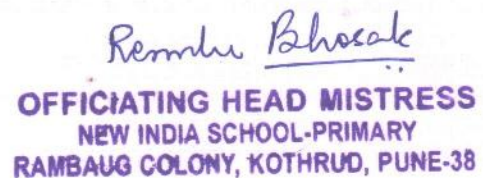 Bhosale
OFFICIATING HEAD MISTRESS
NEW INDIA SCHOOL-PRIMARY
RAMBAUG COLONY, KOTHRUD, PUNE-38